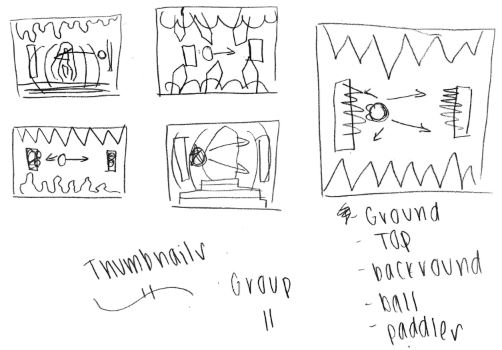 Thumbnails
Group
11
Ground
- Top
- backround
- ball
- paddler